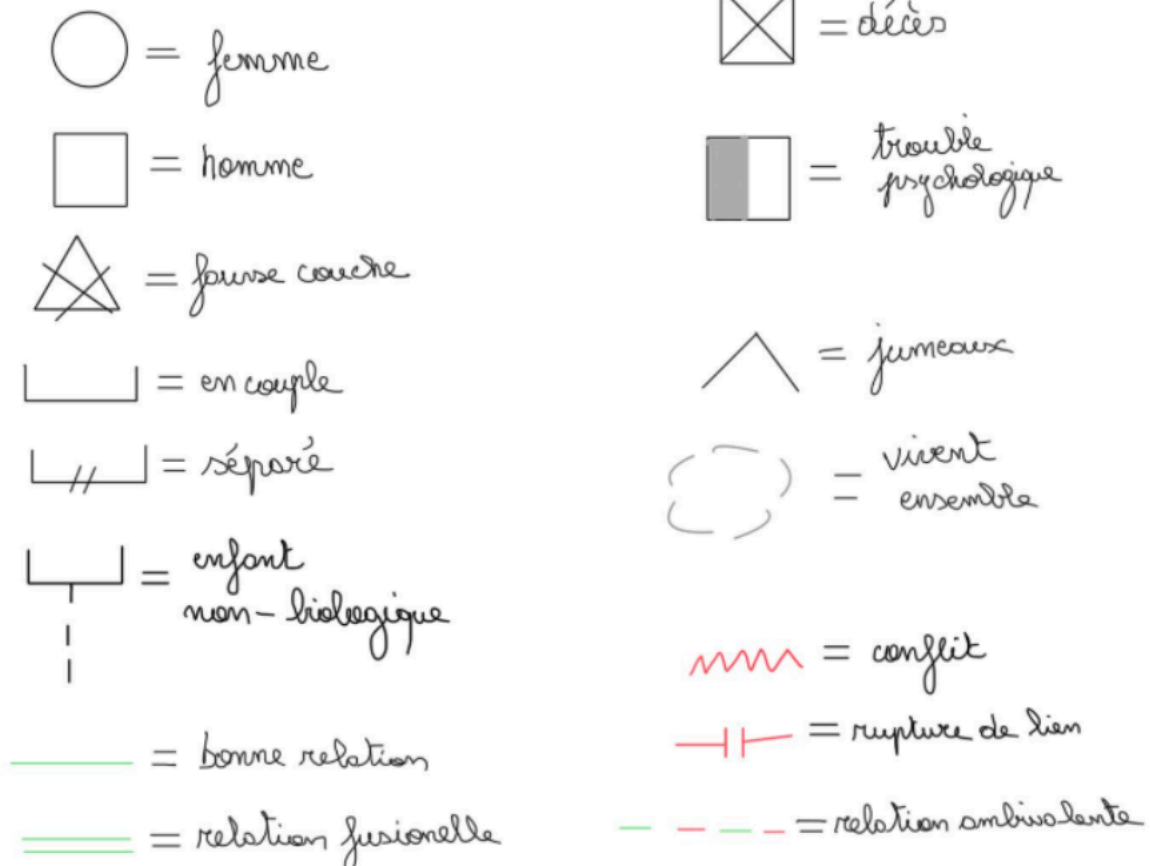 = femme
= homme
= fausse couche
= en couple
= séparé
= enfant
non-biologique
= bonne relation
= relation fusionelle
= décès
= trouble
psychologique
= jumeaux
= vivent
ensemble
= conflit
= rupture de lien
= relation ambivalente